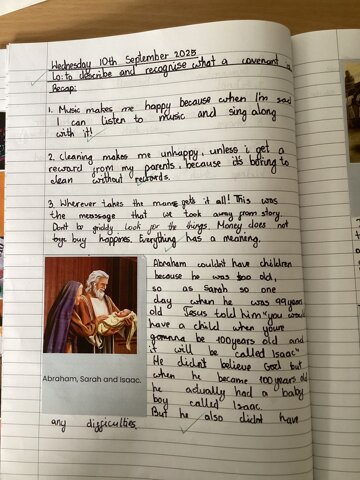 Wednesday 10th September 2025
Lo: to describe and recognise what a covenant is
Recap:
1. Music makes me happy because when I'm sad
I can listen to music and sing along
with it!
2. Cleaning makes me unhappy, unless i get a
reward from my parents, because it's boring to
clean without rewards.
3. Wherever takes the mane gets it all! This was
the message that we took away from story.
Don't be griddy Look for the things. Money does not
buy happines. Everything has a meaning.
Abraham couldn't have children
because he was too old,
so as Sarah so one
day when he was 99 years
old Jesus told him "you would
have a child when youre
gomnna be 100 years old and
it will be called Isaac"
He didn't believe God but
when he became 100 years old
he actually had a baby
boy called Isaac.
But he also didnt have
any difficulties
Abraham, Sarah and Isaac.